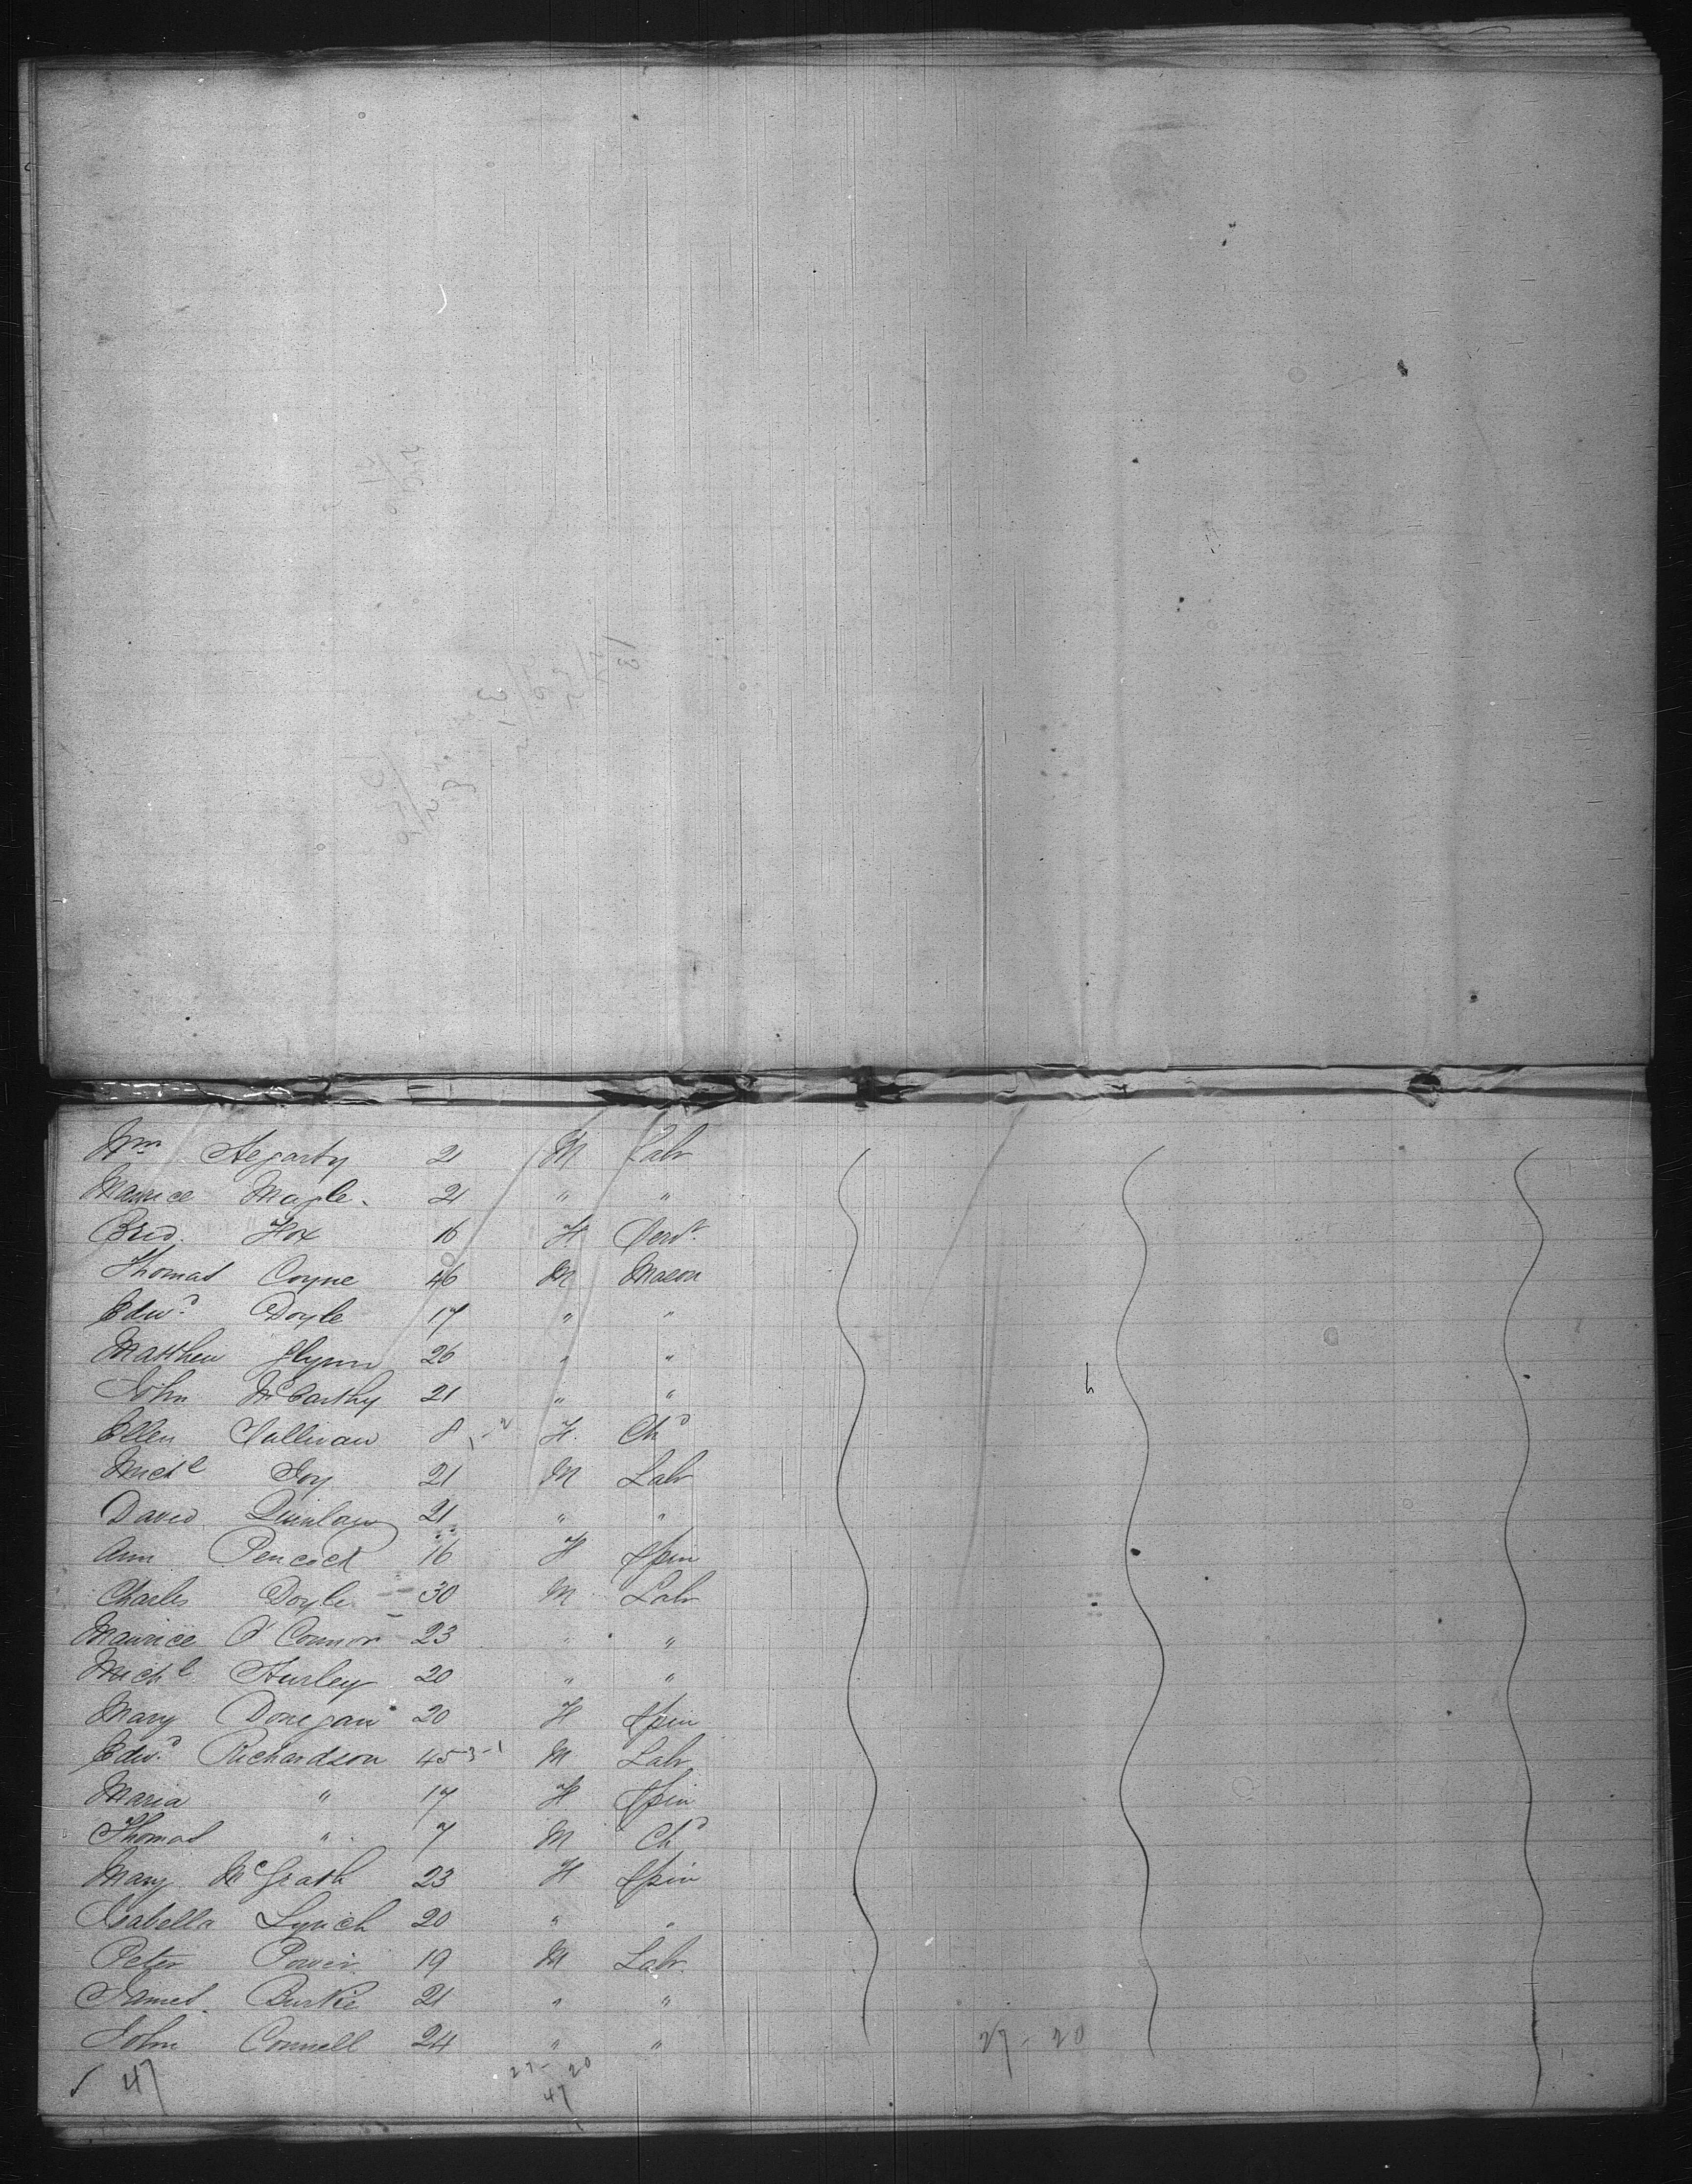 Wm Hegarty 21 M Labr
Maurice Magle 21 " "
Brid. Fox 16 F Servt
Thomas Coyne 46 M Mason
Edwd Doyle 17 " "
Matthew Flynn 26 " "
John McCarthy 21 " "
Ellen Sullivan 8 F. Chd
Michl Joy 21 M Labr
David Quinlan 21 " "
Ann Pencock 16 F Spin
Charles Doyle 30 M Labr
Maurice O'Connor 23 " "
Michl Hurley 20 " "
Mary Donegan 20 F Spin
Edwd Richardson 45 3-1 M Labr
Maria " 17 F Spin
Thomas " 7 M Chd
Mary McGrath 23 F Spin
Isabella Lynch 20 " "
Peter Power 19 M Labr.
James Burke 21 " "
John Connell 24 " "
27-20
47 27-20
47